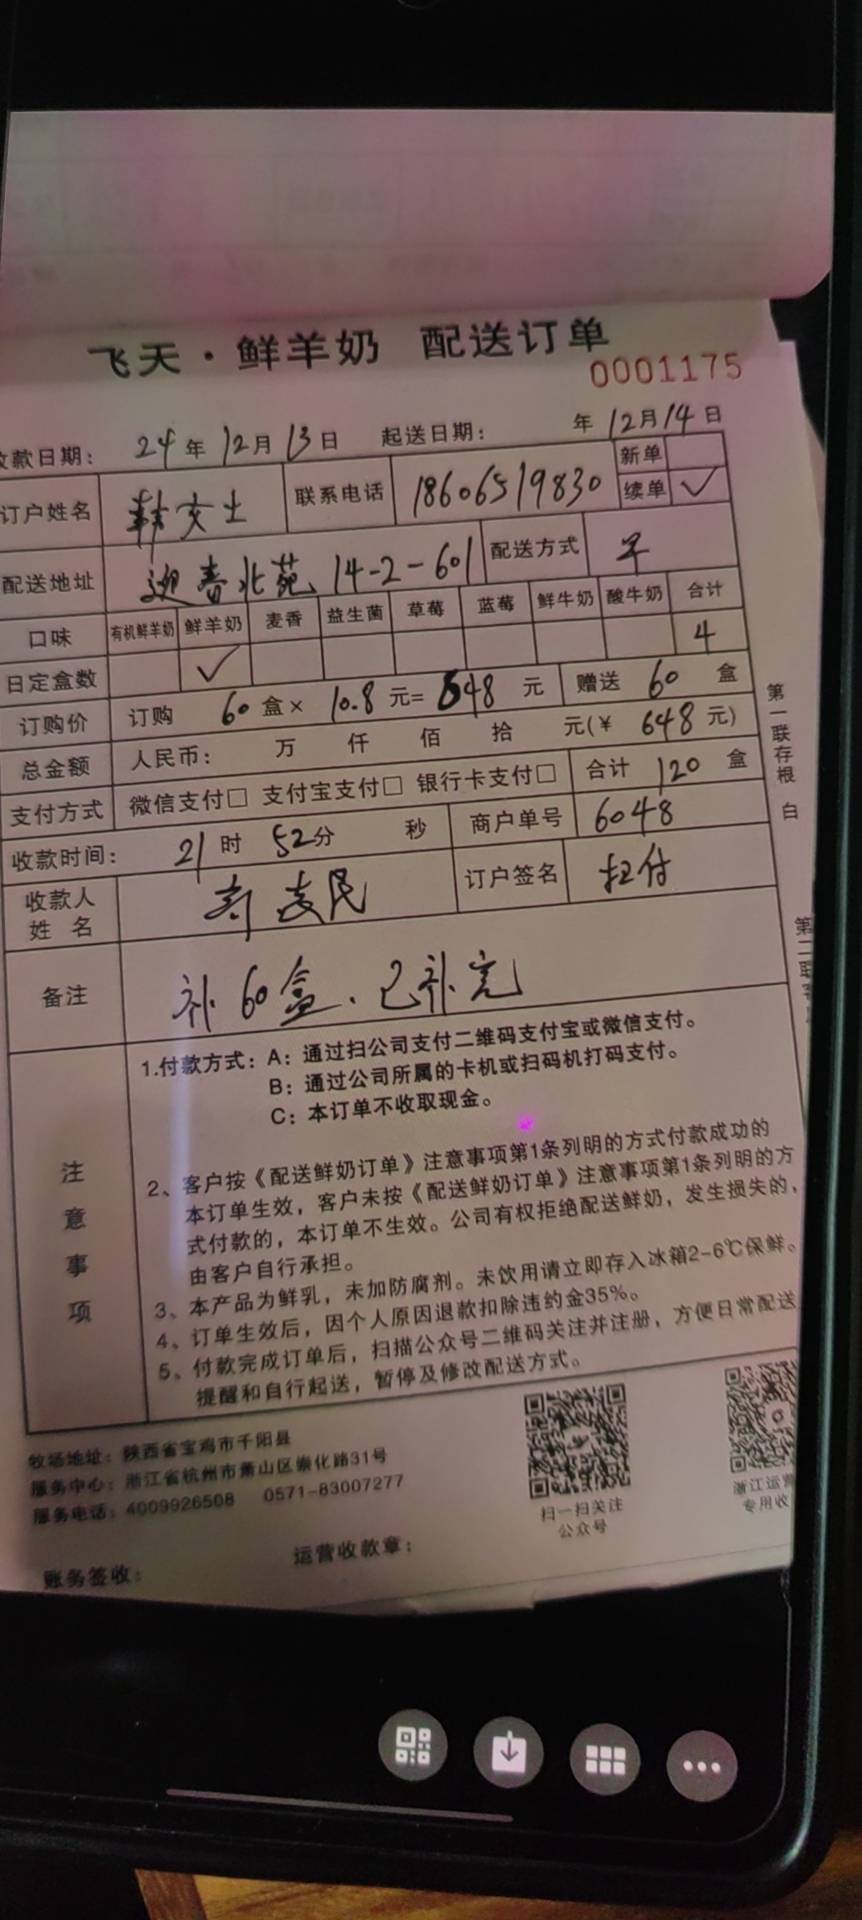 飞天·鲜羊奶 配送订单
0001175
收款日期: 24年12月13日 起送日期: 年12月14日
订户姓名 韩女士 联系电话 18606519830 新单
续单 ✓
配送地址 迎春北苑 14-2-601 配送方式 早
口味 有机鲜羊奶 鲜羊奶 麦香 益生菌 草莓 蓝莓 鲜牛奶 酸牛奶 合计
日定盒数 ✓ 4
订购价 订购 60 盒× 10.8 元= 648 元 赠送 60 盒
总金额 人民币: 万 仟 佰 拾 元(¥ 648 元)
支付方式 微信支付□ 支付宝支付□ 银行卡支付□ 合计 120 盒
收款时间: 21时 52分 秒 商户单号 6048
收款人
姓 名 支民 订户签名 扫付
备注 补60盒、已补完
第一联存根 白
第二联
注意事项
1.付款方式: A: 通过扫公司支付二维码支付宝或微信支付。
B: 通过公司所属的卡机或扫码机打码支付。
C: 本订单不收取现金。
2、客户按《配送鲜奶订单》注意事项第1条列明的方式付款成功的
本订单生效,客户未按《配送鲜奶订单》注意事项第1条列明的方
式付款的,本订单不生效。公司有权拒绝配送鲜奶,发生损失的,
由客户自行承担。
3、本产品为鲜乳,未加防腐剂。未饮用请立即存入冰箱2-6℃保鲜。
4、订单生效后,因个人原因退款扣除违约金35%。
5、付款完成订单后,扫描公众号二维码关注并注册,方便日常配送
提醒和自行起送,暂停及修改配送方式。
牧场地址: 陕西省宝鸡市千阳县
服务中心: 浙江省杭州市萧山区崇化路31号
服务电话: 4009926508 0571-83007277
扫一扫关注
公众号
浙江运营
专用收
运营收款章:
账务签收: